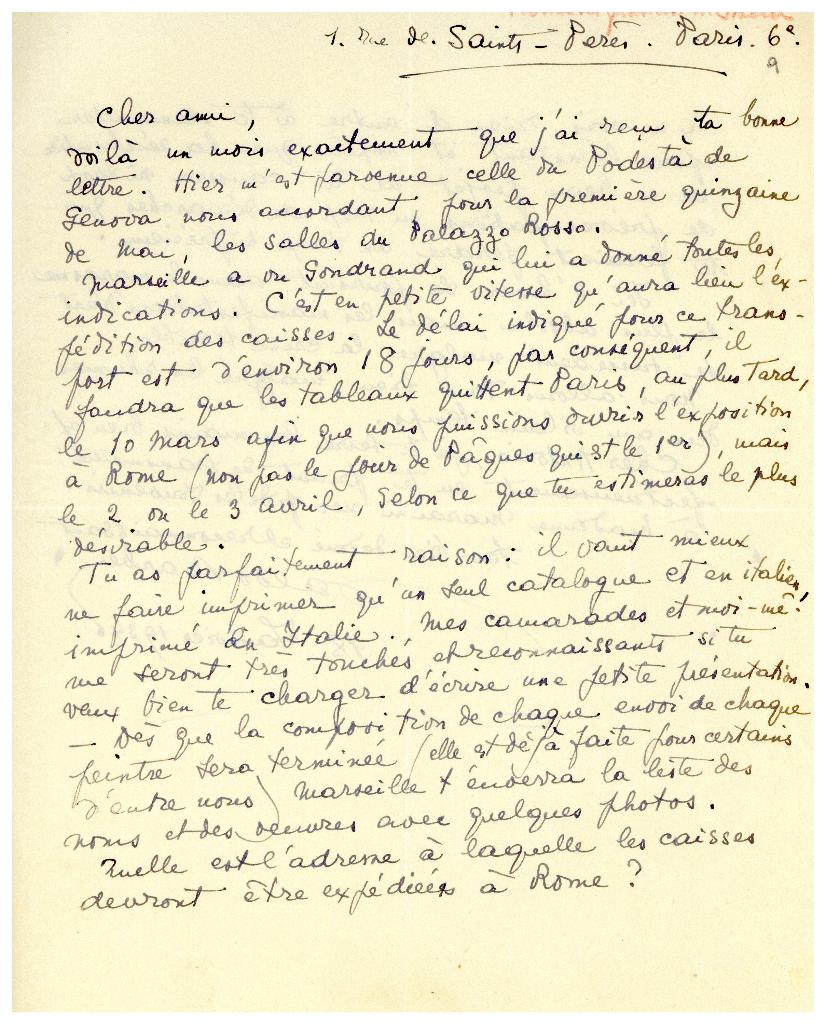 1. rue de. Saints-Pères. Paris. 6e.
9
Cher ami,
Voilà un mois exactement que j'ai reçu ta bonne
lettre. Hier m'est parvenue celle du Podestà de
Genova nous accordant, pour la première quinzaine
de Mai, les salles du Palazzo Rosso.
Marseille a vu Gondrand qui lui a donné toutes les
indications. C'est en petite vitesse qu'aura lieu l'ex-
pédition des caisses. Le délai indiqué pour ce trans-
port est d'environ 18 jours, par conséquent, il
faudra que les tableaux quittent Paris, au plus tard,
le 10 mars afin que nous puissions ouvrir l'exposition
à Rome (non pas le jour de Pâques qui est le 1er), mais
le 2 ou le 3 avril, selon ce que tu estimeras le plus
désirable.
Tu as parfaitement raison : il vaut mieux
ne faire imprimer qu'un seul catalogue et en italien,
imprimé en Italie. Mes camarades et moi-mê-
me seront très touchés et reconnaissants si tu
veux bien te charger d'écrire une petite présentation.
— Dès que la composition de chaque envoi de chaque
peintre sera terminée (elle est déjà faite pour certains
d'entre nous) Marseille t'enverra la liste des
noms et des oeuvres avec quelques photos.
Quelle est l'adresse à laquelle les caisses
devront être expédiées à Rome ?